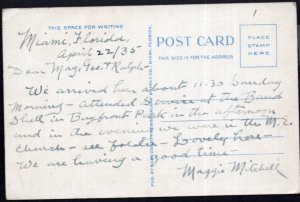 THIS SPACE FOR WRITING
Miami, Florida,
April 22/35
Dear May, Geo. & Ralph -
We arrived here about 11-30 Sunday
Morning - attended Service at the Band
Shell in Bayfront Park in the afternoon
and in the evening we were in the M.E.
Church - see folder - Lovely here -
We are having a good time -
Maggie Mitchell
POST CARD
THIS SIDE IS FOR THE ADDRESS
PLACE
STAMP
HERE
1
MIAMI, FLORIDA.